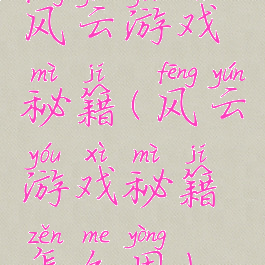 风云游戏
mì jí fēng yún
秘籍(风云
yóu xì mì jí
游戏秘籍
zěn me yòng
怎么用)